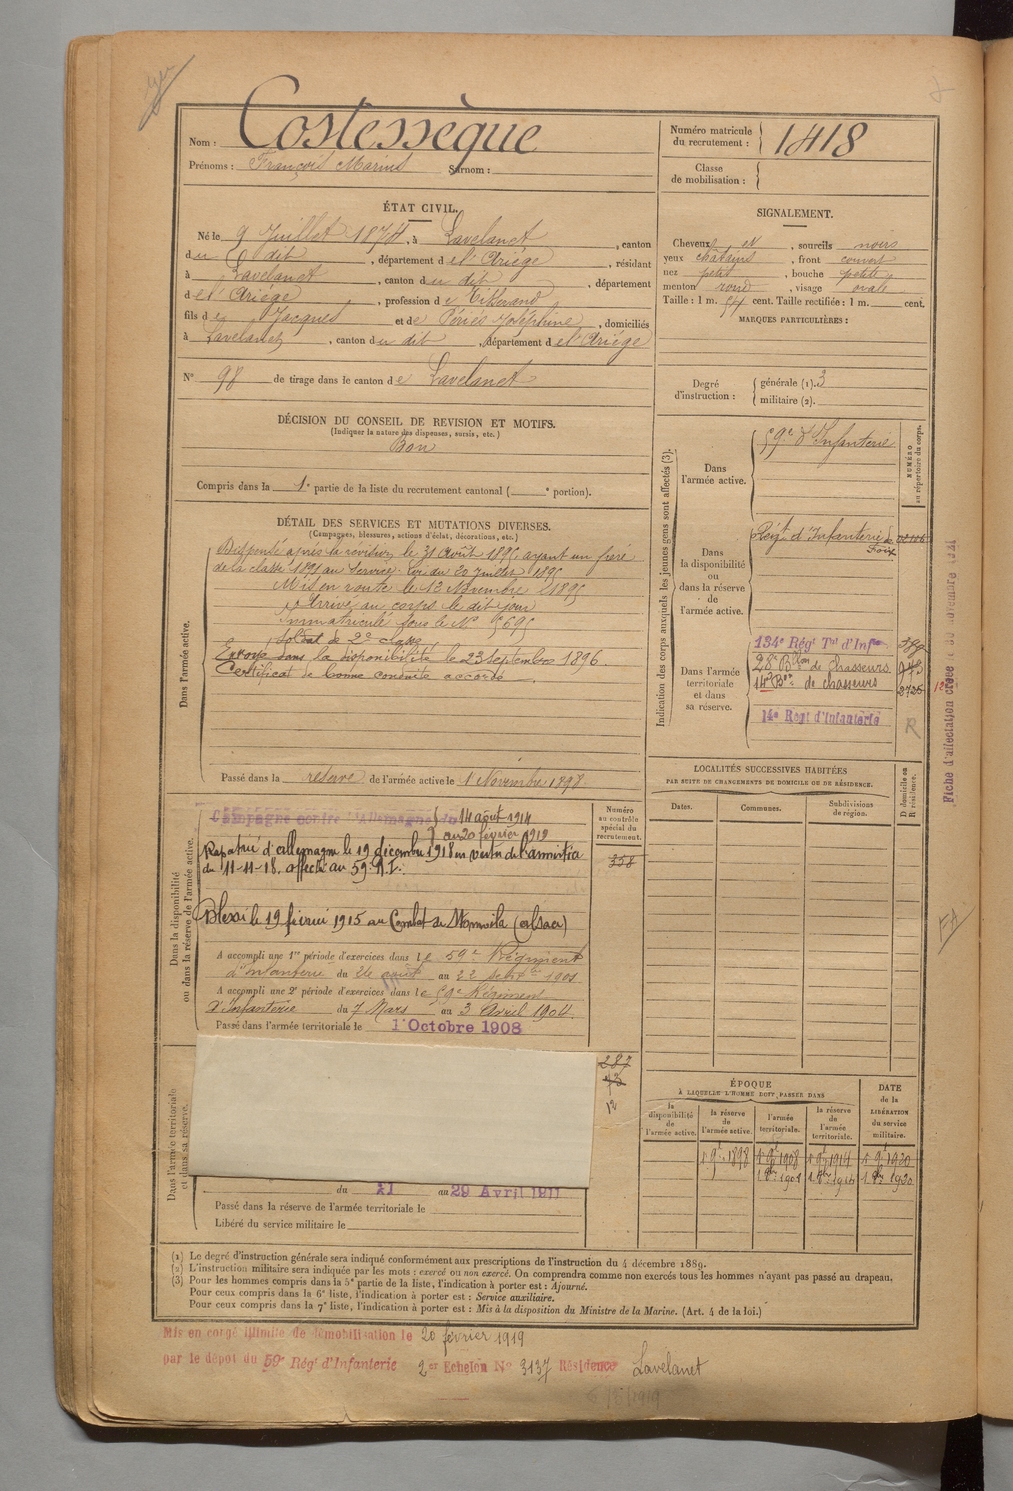 Nom : Costessèque
Prénoms : François Marius Surnom :
Numéro matricule du recrutement : 1418
Classe de mobilisation :
ÉTAT CIVIL.
Né le 9 Juillet 1874, à Lavelanet, canton
du dit, département de l'Ariège, résidant
à Lavelanet, canton du dit, département
de l'Ariège, profession de Tisserand
fils de Jacques et de Périès Joséphine, domiciliés
à Lavelanet, canton du dit, département de l'Ariège
N° 98 de tirage dans le canton de Lavelanet
SIGNALEMENT.
Cheveux et, sourcils noirs
yeux châtains, front couvert
nez petit, bouche petite
menton rond, visage ovale
Taille : 1 m. 54 cent. Taille rectifiée : 1 m. cent.
MARQUES PARTICULIÈRES :
Degré d'instruction : générale (1). 3
militaire (2).
DÉCISION DU CONSEIL DE REVISION ET MOTIFS.
(Indiquer la nature des dispenses, sursis, etc.)
Bon
Compris dans la 1e partie de la liste du recrutement cantonal ( e portion).
DÉTAIL DES SERVICES ET MUTATIONS DIVERSES.
(Campagnes, blessures, actions d'éclat, décorations, etc.)
Dans l'armée active.
Dispensé après la révision le 31 Août 1895 ayant un frère
de la classe 1891 au service. Loi du 20 juillet 1895
Mis en route le 13 Novembre 1895
Arrivé au corps le dit jour
Immatriculé sous le N° 5695
Soldat de 2e classe
Envoyé dans la disponibilité le 23 septembre 1896.
Certificat de bonne conduite accordé.
Passé dans la réserve de l'armée active le 1 Novembre 1898
Indication des corps auxquels les jeunes gens sont affectés (3).
NUMÉRO au répertoire du corps.
Dans l'armée active.
59e d'Infanterie
Dans la disponibilité ou dans la réserve de l'armée active.
Régt d'Infanterie de Foix
Dans l'armée territoriale et dans sa réserve.
134e Régt Tal d'Infie
28e Bllon de Chasseurs
14e Bon de chasseurs
14e Regt d'Infanterie
R
LOCALITÉS SUCCESSIVES HABITÉES
PAR SUITE DE CHANGEMENTS DE DOMICILE OU DE RÉSIDENCE.
Dates.
Communes.
Subdivisions de région.
D domicile ou R résidence.
Fiche d'affectation créée le novembre 1921
Dans la disponibilité ou dans la réserve de l'armée active.
Numéro au contrôle spécial du recrutement.
358
Campagne contre l'Allemagne du 14 août 1914
au 20 février 1919
Rapatrié d'allemagne le 19 décembre 1918 en vertu de l'armistice
du 11-11-18. affecté au 59e R.I.
Blessé le 19 février 1915 au Combat de (Alsace)
A accompli une 1re période d'exercices dans le 59e Régiment
d'Infanterie du 26 août au 22 septbre 1901
A accompli une 2e période d'exercices dans le 59e Régiment
d'Infanterie du 7 Mars au 3 Avril 1904.
Passé dans l'armée territoriale le 1 Octobre 1908
Dans l'armée territoriale et dans sa réserve.
287
12
du 21 au 29 Avril 1911
Passé dans la réserve de l'armée territoriale le
Libéré du service militaire le
ÉPOQUE
À LAQUELLE L'HOMME DOIT PASSER DANS
la disponibilité de l'armée active.
la réserve de l'armée active.
l'armée territoriale.
la réserve de l'armée territoriale.
DATE de la LIBÉRATION du service militaire.
1 9bre 1898
1 9bre 1908
1 9bre 1914
1 9bre 1920
(1) Le degré d'instruction générale sera indiqué conformément aux prescriptions de l'instruction du 4 décembre 1889.
(2) L'instruction militaire sera indiquée par les mots : exercé ou non exercé. On comprendra comme non exercés tous les hommes n'ayant pas passé au drapeau.
(3) Pour les hommes compris dans la 5e partie de la liste, l'indication à porter est : Ajourné.
Pour ceux compris dans la 6e liste, l'indication à porter est : Service auxiliaire.
Pour ceux compris dans la 7e liste, l'indication à porter est : Mis à la disposition du Ministre de la Marine. (Art. 4 de la loi.)
Mis en congé illimité de démobilisation le 20 février 1919
par le dépôt du 59e Régt d'Infanterie 2er Echelon N° 3137 Résidence Lavelanet